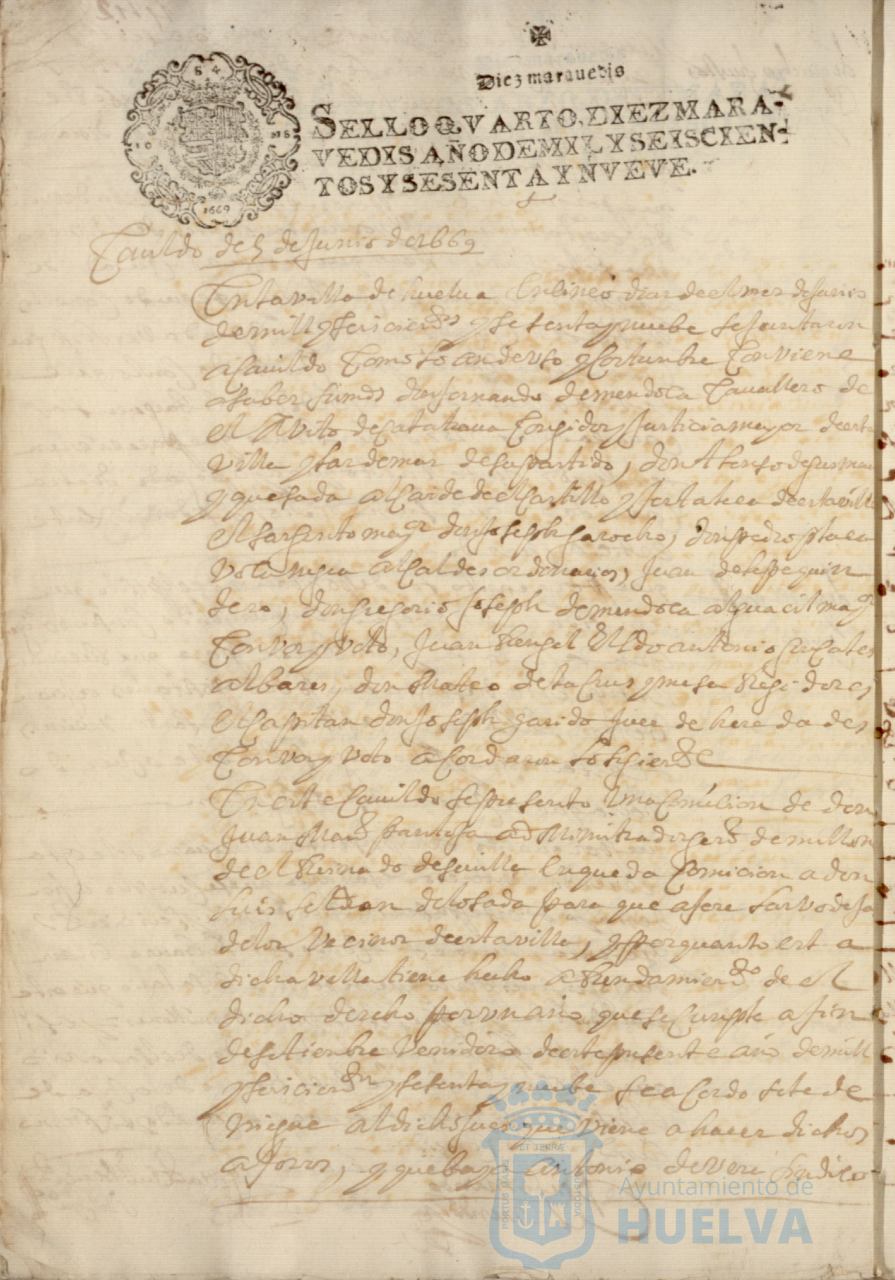 Diez maravedis
SELLO QVARTO, DIEZ MARA-
VEDIS AÑO DE MIL Y SEISCIEN-
TOS Y SESENTA Y NVEVE.
1669
Cauildo de 5 de Junio de 1669
En la villa de huelua en sinco dias de el mes de Junio
de mill y seiscientos y sesenta y nuebe se juntaron
a Cauildo Como lo an de vso y Costumbre Conviene
a saber su md don fernando de mendoca Cauallero de
el Avito de Calatraua Corregidor y Justicia mayor de esta
villa y tar de mar de su partido, don Alonso de gusman
y quesada alcaide de el Castillo y fortaleca de esta villa
el sargento mayr don Joseph garocho, don pedro
alcaldes ordinarios, Juan de
dero, don gregorio Joseph de mendoca alguacil mayr
Con vos y voto, Juan Rangel el Ldo antonio
albares, don Mateo de la Crus y mesa Regidores,
el Capitan don Joseph garrido Juee de heredades
Con vos y voto acordaron lo siguiente
En este Cauildo se presento una Comision de don
Juan pantoja administrador de millon
de el Reinado de seuilla en que da Comicion a don
Luis de losada para que afore
de los Vecinos de esta villa, y por quanto est a
dicha villa tiene hecho aRendamiento de el
dicho derecho por vn año que se Cumple a fin
de setiembre Venidero de este presente año de mill
y seiscientos y sesenta y nuebe se acordo se le de
al dicho Juez que viene a hacer dichos
aforos, y que baya antonio de vera
Ayuntamiento de
HUELVA
PORTUS MARIS
ET TERRAE
CUSTODIA